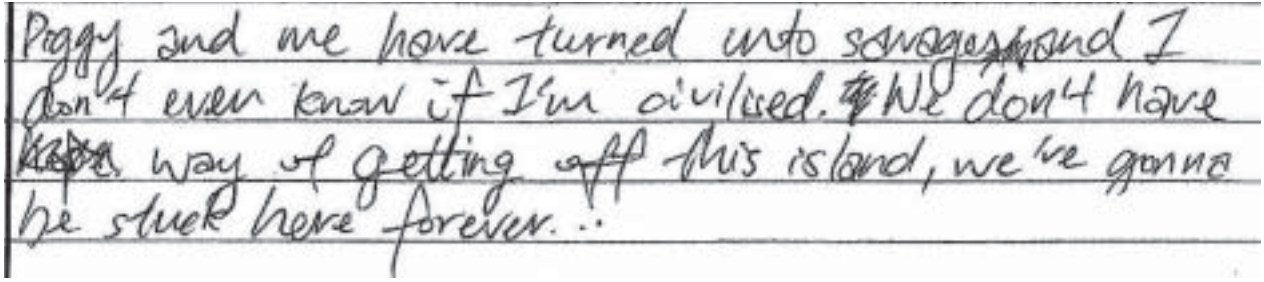 Piggy and me have turned into savages and I
don't even know if I'm civilised. We don't have
a way of getting off this island, we're gonna
be stuck here forever...